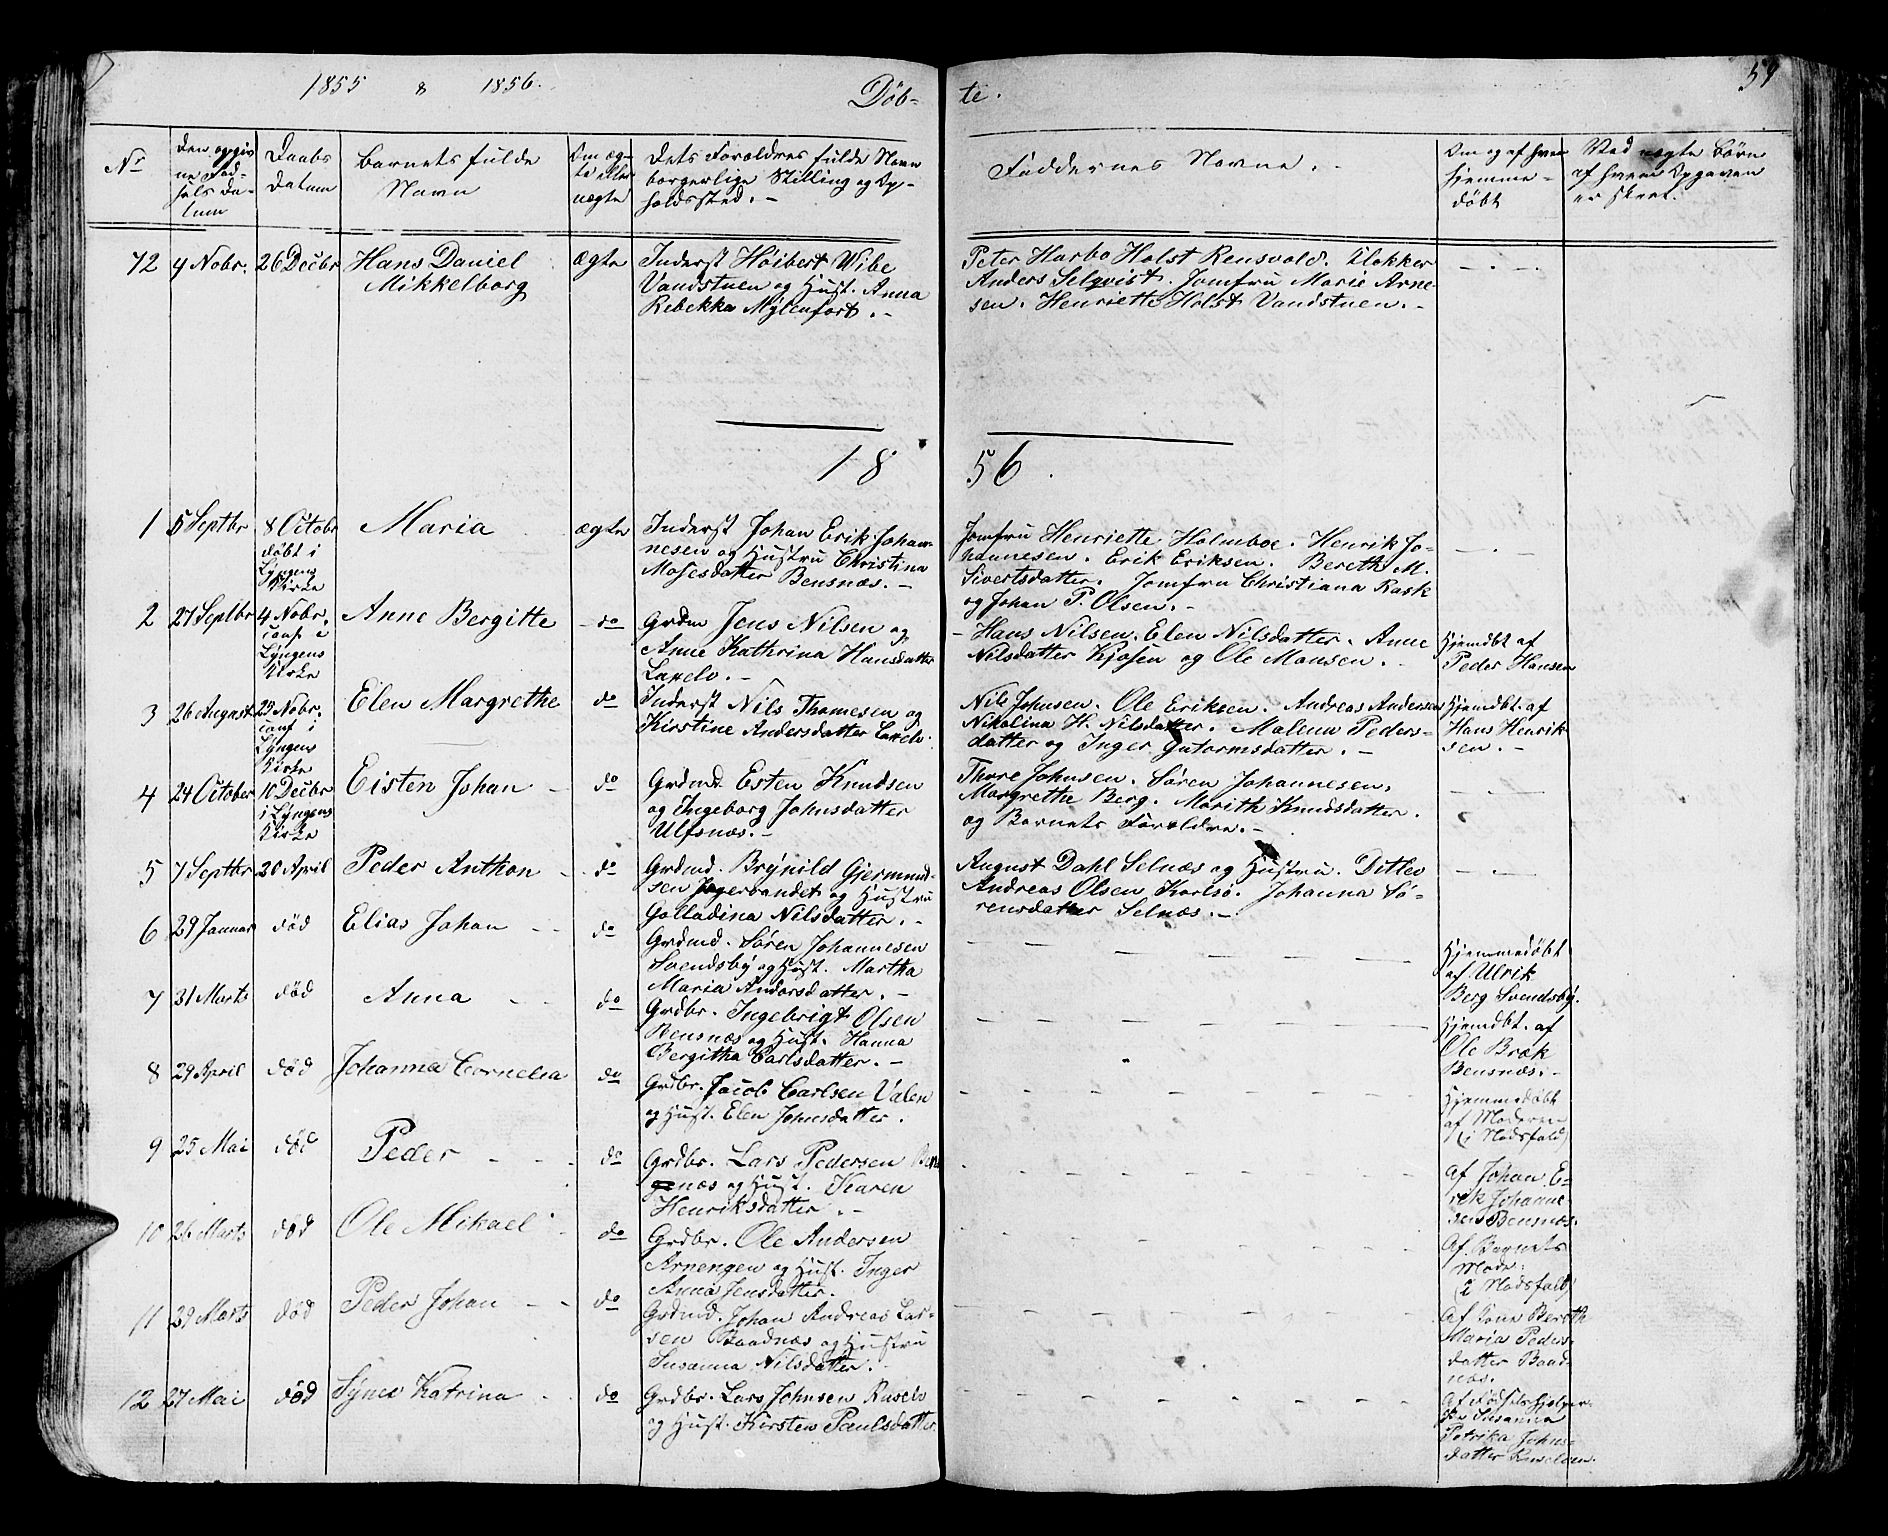 1855 & 1856.
Döb- te.
59
Nr
Den opgiv
ne Föd-
sels Da-
tum
Daabs
Datum
Barnets fulde
Navn
Om æg-
te eller
uægte
Dets Forældres fulde Navn
borgerlige Stilling og Op-
holdssted. -
Faddernes Navne. -
Om og af hvem
hjemme-
döbt
Ved uægte Börn
af hvem Opgaven
er skeet.
72 4 Nobr. 26 Decbr Hans Daniel ægte Inderst Höibert Wibe
Mikkelborg Vandstuen og Hust. Anna
Rebekka Mylenfort. -
Peter Harbo Holst Rensvold. Klokker
Anders Selqvist. Jomfru Marie Arne-
sen. Henriette Holst Vandstuen. -
18 56.
1 5 Septbr 8 Octobr Maria ægte Inderst Johan Erik Johan-
döbt i
Lyngens
Kirke
nesen og Hustru Christina
Mosesdatter Bensnæs. -
Jomfru Henriette Holmboe. Henrik Jo-
hannesen. Erik Eriksen. Bereth M.
Sivertsdatter. Jomfru Christiana Rask
og Johan P. Olsen. -
2 27 Septbr 4 Nobr. Anne Bergitte do Grdm Jens Nilsen og
conf i
Lyngens
Kirke
Anne Kathrina Hansdatter
Laxelv. -
- Hans Nilsen. Elen Nilsdatter. Anne
Nilsdatter Kjosen og Ole Monsen. -
Hjemdöbt af
Peder Hansen
3 26 August 29 Nobr. Elen Margrethe do Inderst Nils Thomesen og
conf i
Lyngens
Kirke
Kirstine Andersdatter Laxelv.
Nils Johnsen. Ole Eriksen. Andreas Andersen
Nikolina H. Nilsdatter. Malena Peders-
datter og Inger Gutormsdatter. -
Hjemdöbt af
Hans Henrik-
sen. -
4 24 October 10 Decbr Eisten Johan - do Grdmd. Esten Knudsen
i Lyngens
Kirke
og Ingeborg Johnsdatter
Ulfsnæs. -
Thore Johnsen. Sören Johannesen.
Margrethe Berg. Marith Knudsdatter.
og Barnets Forældre. -
5 7 Septbr 20 April Peder Anthon - do Grdmd. Brynild Gjermund-
sen Jægervandet og Hustru
Golladina Nilsdatter. -
August Dahl Selnæs og Hustru. Ditlev
Andreas Olsen Karlsö. Johanna Sö-
rensdatter Selnæs. -
6 29 Januar död Elias Johan - - do Grdmd. Sören Johannesen
Svendsby og Hust. Martha
Maria Andersdatter. -
Hjemmedöbt
af Ulrik
Berg Svendsby.
7 31 Marts död Anna - - do Grdbr. Ingebrigt Olsen
Bensnæs og Hust. Hanna
Bergitha Carlsdatter. -
Hjemdöbt. af
Ole Bræk
Bensnæs. -
8 29 April död Johanna Cornelia do Grdbr. Jacob Carlsen Valen
og Hust. Elen Johnsdatter.
Hjemmedöbt
af Moderen
(i Nödsfald)
9 25 Mai död Peder - - - do Grdbr. Lars Pedersen Ben
næs og Hust. Karen
Henriksdatter. -
af Johan E-
rik Johanne-
sen Bensnæs.
10 26 Marts död Ole Mikael - do Grdbr. Ole Andersen
Arnengen og Hust. Inger
Anna Jensdatter.
Af Barnets
Moder
(i Nödsfald)
11 29 Marts död Peder Johan - - do Grdmd. Johan Andreas Lar-
sen Baadnæs og Hustru
Susanna Nilsdatter. -
Af Kone Bereth
Maria Peders-
datter Baad-
næs.
12 27 Mai död Synev Katrina - do Grdbr. Lars Johnsen Ruselv
og Hust. Kirsten Paulsdatter.
Af Födselshjelper-
Susanna
Petrika Johns-
datter Ruselven.